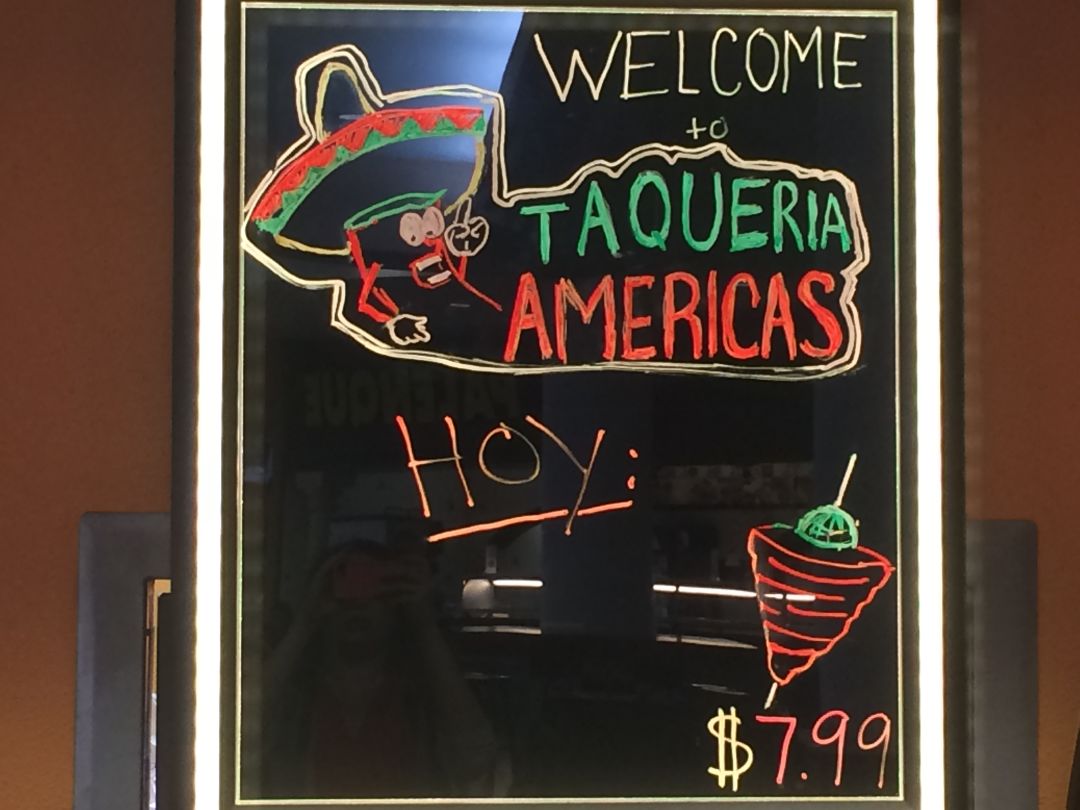 WELCOME
to
TAQUERIA
AMERICAS
HOY:
PALENQUE
$7.99